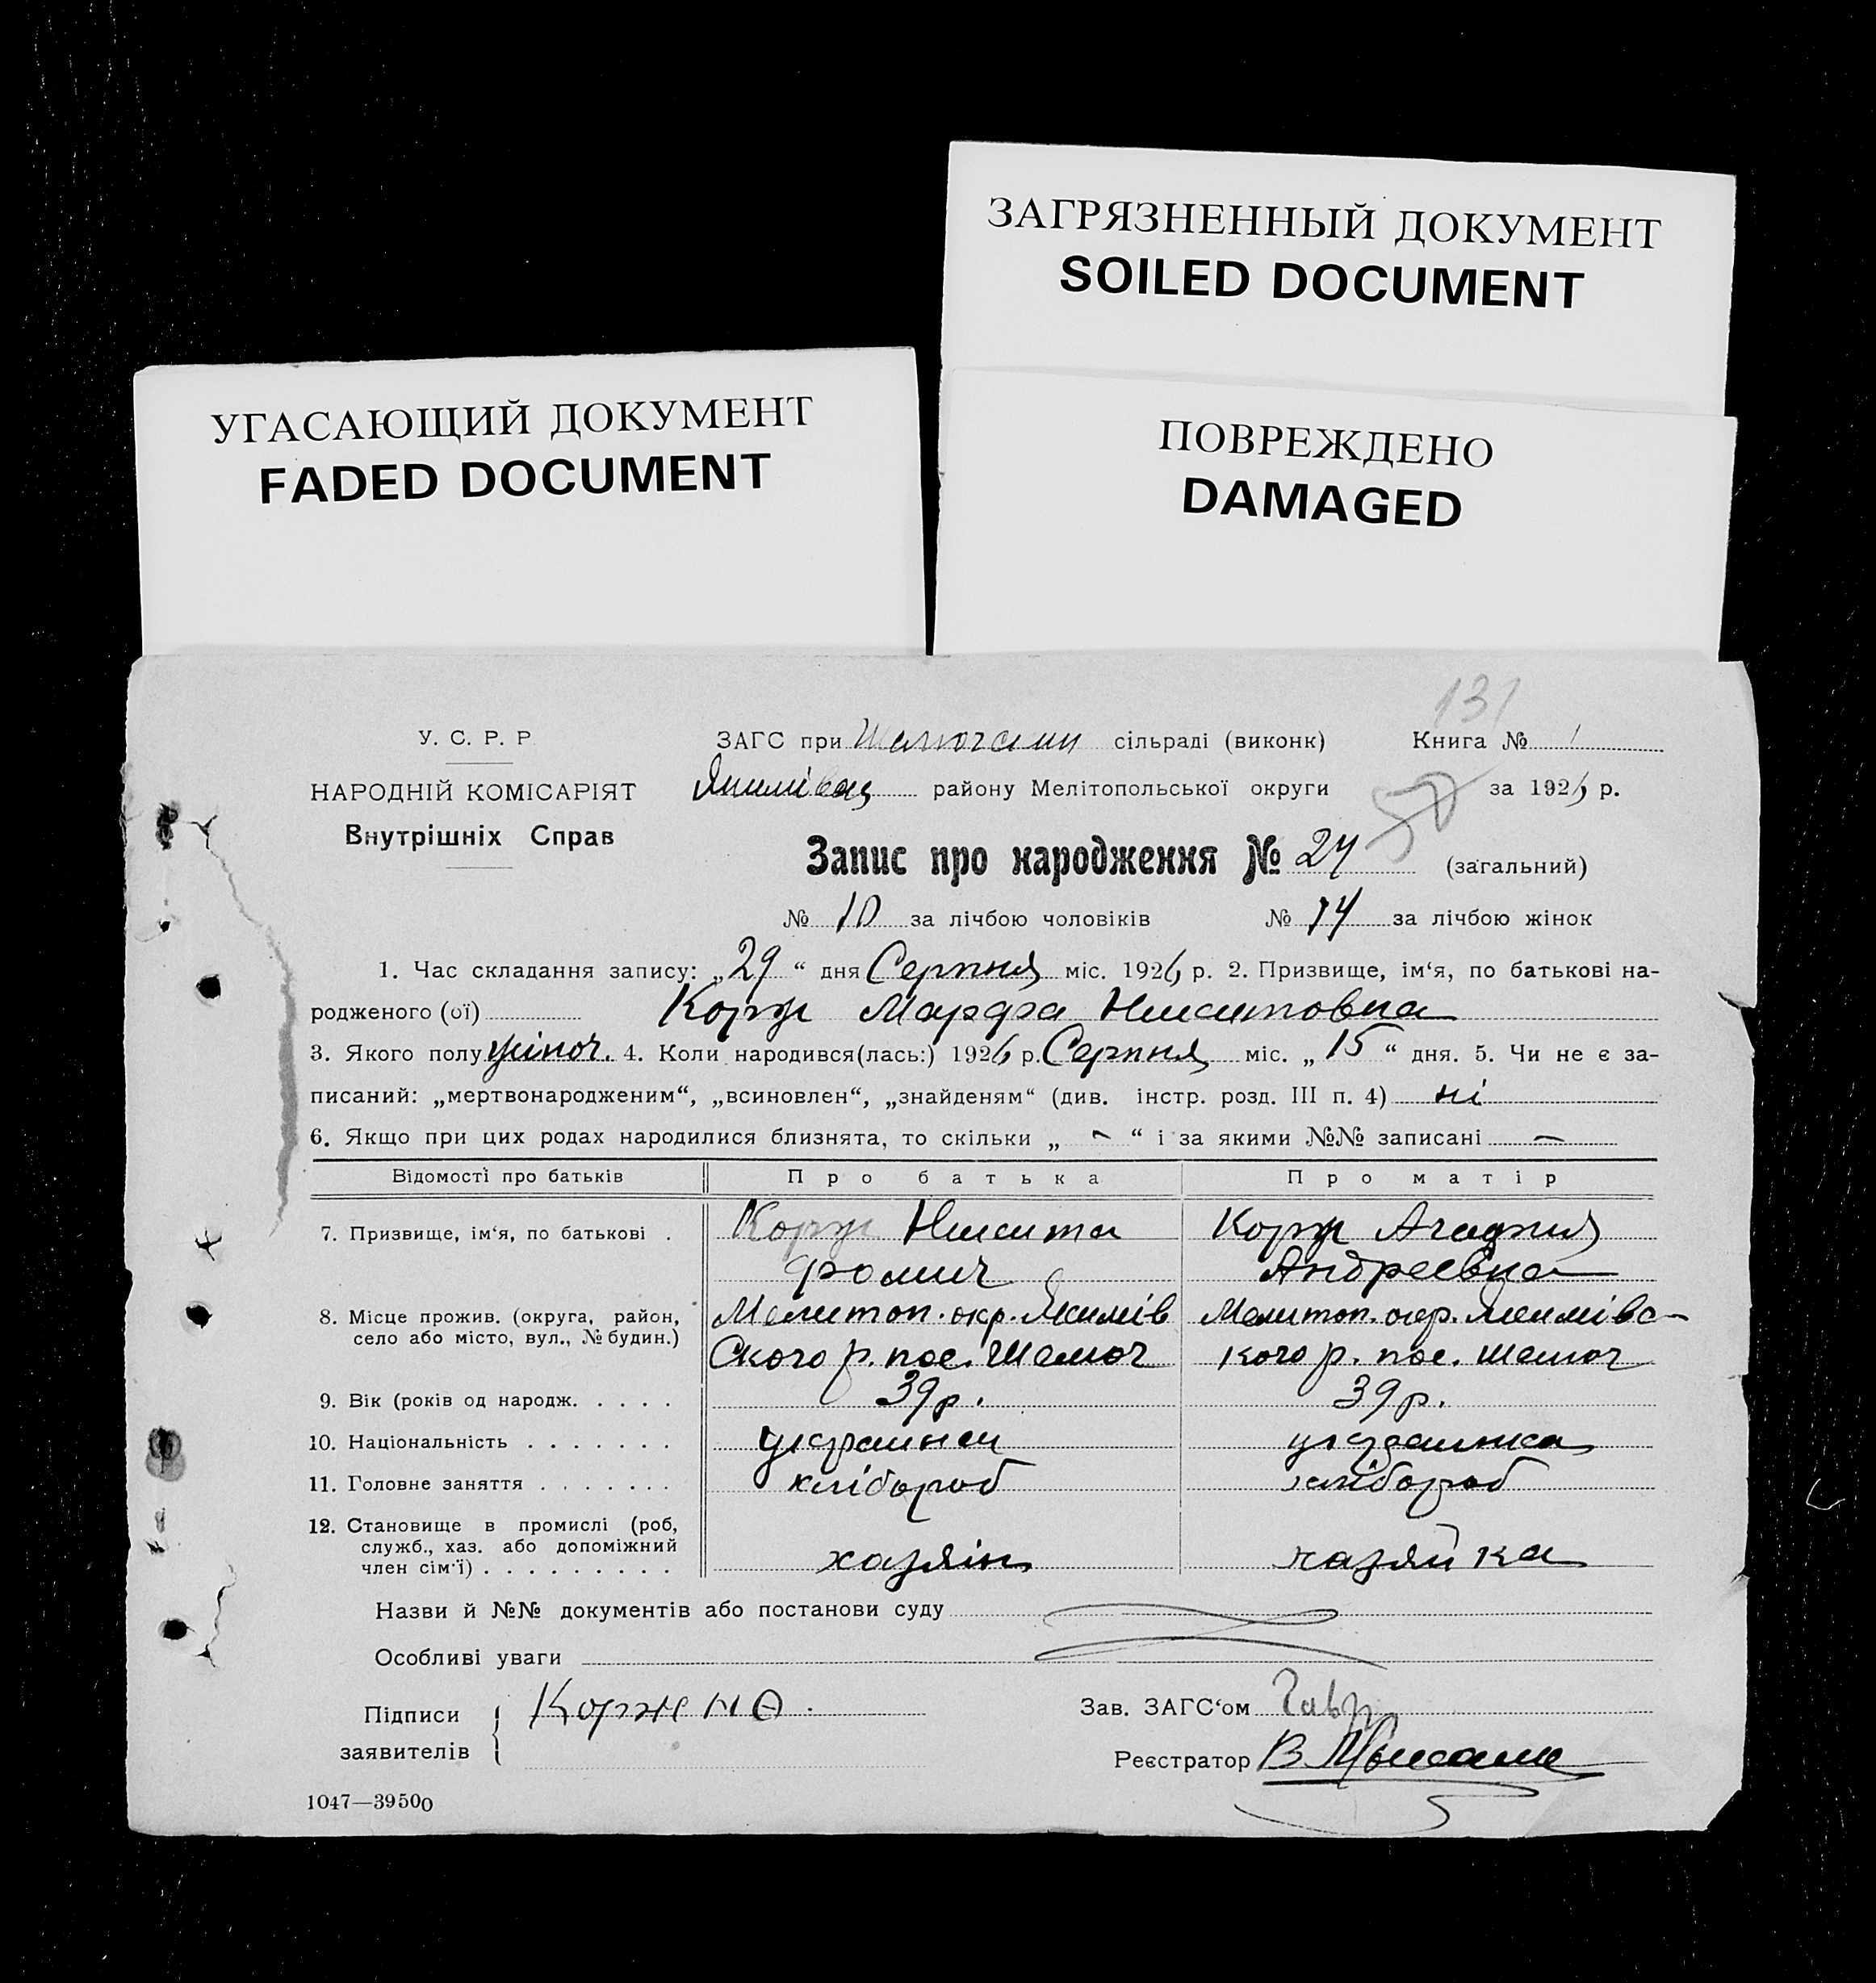 ЗАГРЯЗНЕННЫЙ ДОКУМЕНТ
SOILED DOCUMENT
УГАСАЮЩИЙ ДОКУМЕНТ
FADED DOCUMENT
ПОВРЕЖДЕНО
DAMAGED
131
У. С. Р. Р
НАРОДНІЙ КОМІСАРІЯТ
Внутрішніх Справ
ЗАГС при сільраді (виконк) Книга № 1
району Мелітопольської округи за 1926 р.
50
Запис про народження № 24 (загальний)
№ 10 за лічбою чоловіків № 14 за лічбою жінок
1. Час складання запису: „29“ дня Серпня міс. 1926 р. 2. Призвище, ім‘я, по батькові на-
родженого (ої) Корж Марфа Никитовна
3. Якого полу жіноч. 4. Коли народився(лась:) 1926 р. Серпня міс. „15“ дня. 5. Чи не є за-
писаний: „мертвонародженим“, „всиновлен“, „знайденям“ (див. інстр. розд. III п. 4) ні
6. Якщо при цих родах народилися близнята, то скільки „ - “ і за якими №№ записані —
Відомості про батьків Про батька Про матір
7. Призвище, ім‘я, по батькові . Корж Никита Корж Агафия
Фомич Андреевна
8. Місце прожив. (округа, район, Мелитоп. окр. Якимів Мелитоп. окр. Якимівс-
село або місто, вул., № будин.) Ского р. пос. кого р. пос.
9. Вік (років од народж. . . . . 39 р. 39 р.
10. Національність . . . . . . . українец українка
11. Головне заняття . . . . . . . хлібороб хлібороб
12. Становище в промислі (роб,
служб., хаз. або допоміжний
член сім‘ї) . . . . . . . . . хазяін хазяйка
Назви й №№ документів або постанови суду
Особливі уваги
Підписи Корж НѲ. Зав. ЗАГС‘ом
заявителів Реєстратор
1047—39500